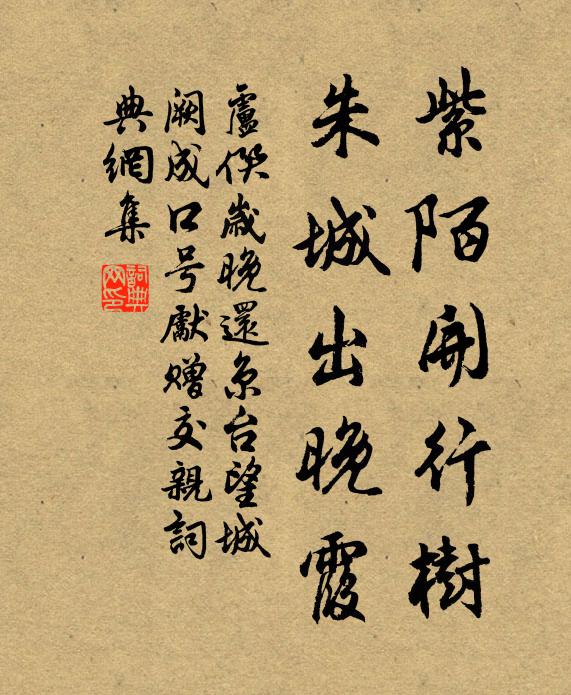 紫陌開行樹
朱城出晚霞
盧僎歲晚還京台望城
闕成口号獻贈交親詞
典網集
詞典网印